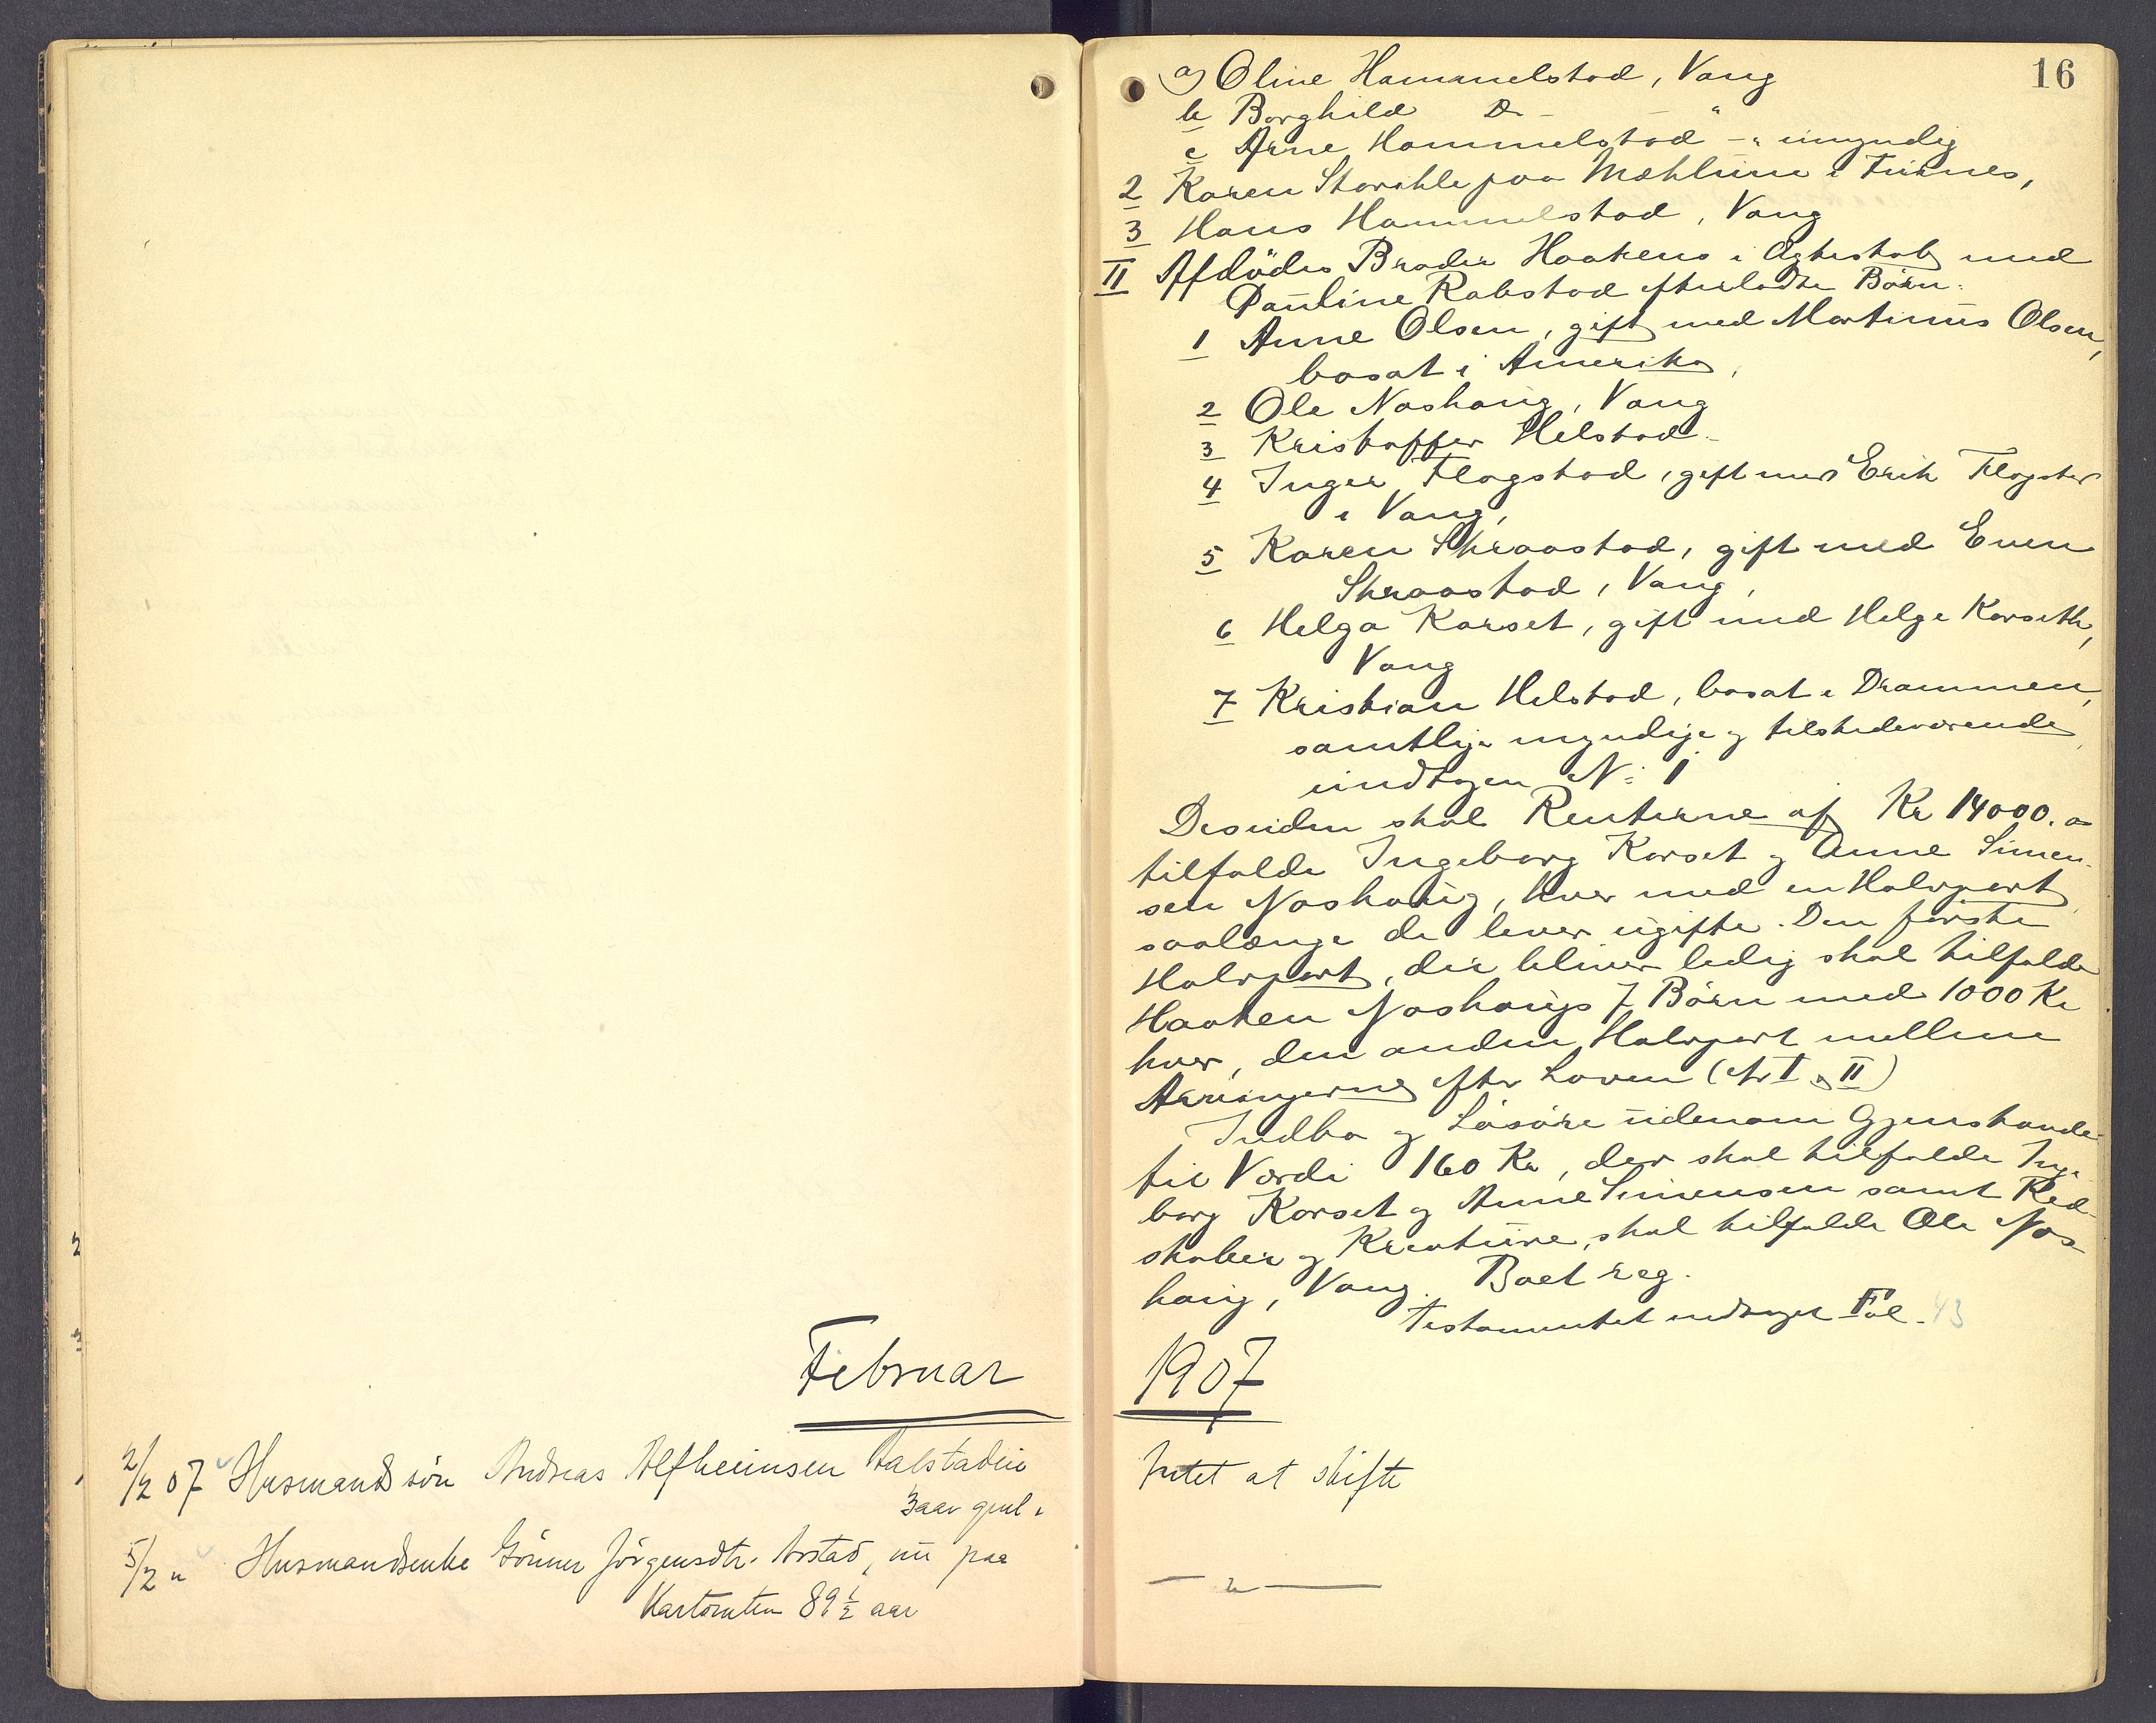 Februar
2/2 07 Husmandssön Andreas Alfheimsen
3 aar gml.
5/2 " Husmandsenke Jörgensdtr. Arstad, nu paa
Kartomten 89 1/2 aar
16
a) Oline Hammelstad, Vang
b Borghild D - - "
c Arne Hammelstad -" umyndig
2 Karen Storihle paa Mæhlum i Furnes,
3 Hans Hammelstad, Vang
II Afdödes Broder Haakens i Ægteskab med
Pauline Rabstad efterladte Börn:
1 Anne Olsen, gift med Martinus Olsen,
bosat i Amerika,
2 Ole Nashoug, Vang
3 Kristoffer Helstad -
4 Inger Flagstad, gift med Erik Flagstad
i Vang,
5 Karen Skraastad, gift med Even
Skraastad, Vang,
6 Helga Karset, gift med Helge Karseth,
Vang
7 Kristian Helstad, bosat i Drammen,
samtlige myndige og tilstedeværende
undtagen N: 1
Desuden skal Renterne af Kr 14000. -
tilfalde Ingeborg Karset og Anne Simen-
sen Nashoug, hver med en Halvpart,
saalænge de lever ugifte. Den förste
Halvpart, der bliver ledig skal tilfalde
Haaken Nashougs 7 Börn med 1000 Kr
hver, den anden Halvpart mellem
Arvingerne efter Loven (Nr I og II)
Indbo og Lösöre udenom Gjenstande
til Værdi 160 Kr, der skal tilfalde Inge
borg Karset og Anne Simensen samt Red-
skaber og Kreature, skal tilfalde Ole Nas-
houg, Vang. Boet reg.
Testamentet indtaget Fol. 43
1907
Intet at skifte
— " —